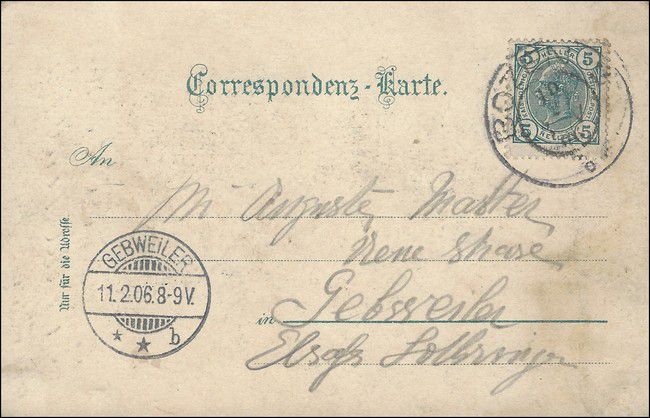 Correspondenz-Karte.
5 HELLER 5
5 HELLER 5
An
M Auguste
Neue
Nur für die Adresse
GEBWEILER
11.2.06.8-9V.
* * b
in Gebweiler
Elsass Lothringen